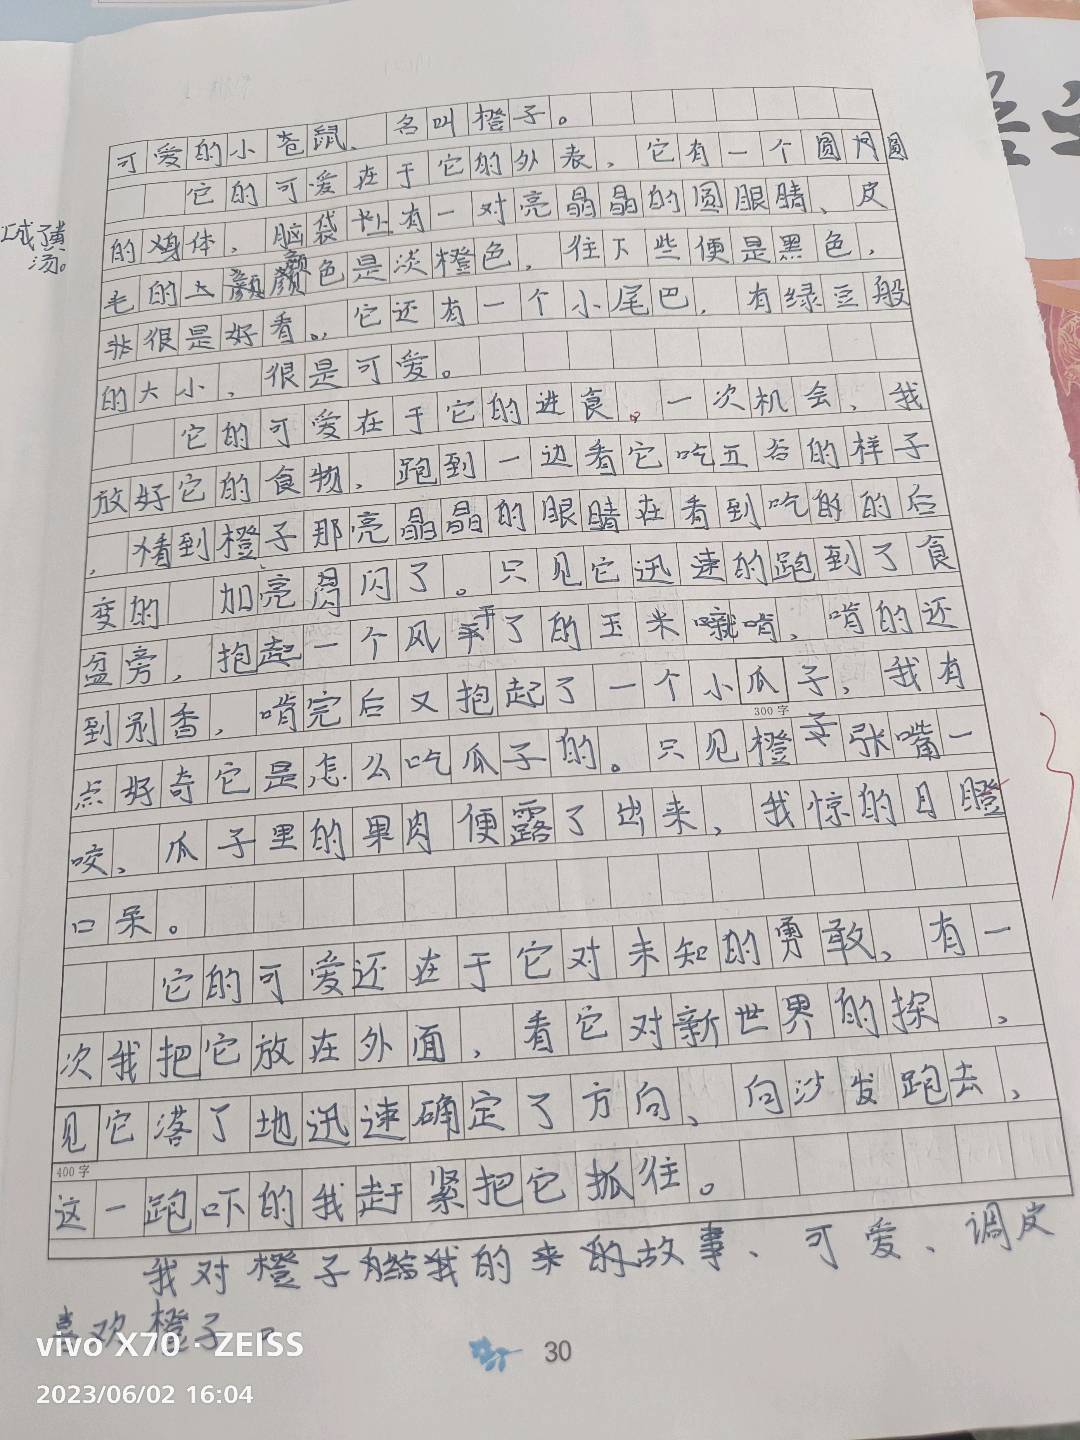 可爱的小苍鼠、名叫橙子。
它的可爱在于它的外表，它有一个圆圆
的身体，脑袋上有一对亮晶晶的圆眼睛、皮
毛的颜色是淡橙色，往下些便是黑色，
很是好看。它还有一个小尾巴，有绿豆般
的大小，很是可爱。
它的可爱在于它的进食。一次机会、我
放好它的食物，跑到一边看它吃五谷的样子
，看到橙子那亮晶晶的眼睛在看到吃的的后
变的 加亮闪了。只见它迅速的跑到了食
盆旁，抱起一个风干了的玉米啃，啃的还
到别香，啃完后又抱起了一个小瓜子，我有
300字
点好奇它是怎么吃瓜子的。只见橙子张嘴一
咬、瓜子里的果肉便露了出来，我惊的目瞪
口呆。
它的可爱还在于它对未知的勇敢、有一
次我把它放在外面，看它对新世界的探 、
见它落了地迅速确定了方向、向沙发跑去，
400字
这一跑吓的我赶紧把它抓住。
我对橙子 我的来的故事、可爱、调皮
喜欢橙子。
汤。
30
vivo X70 · ZEISS
2023/06/02 16:04